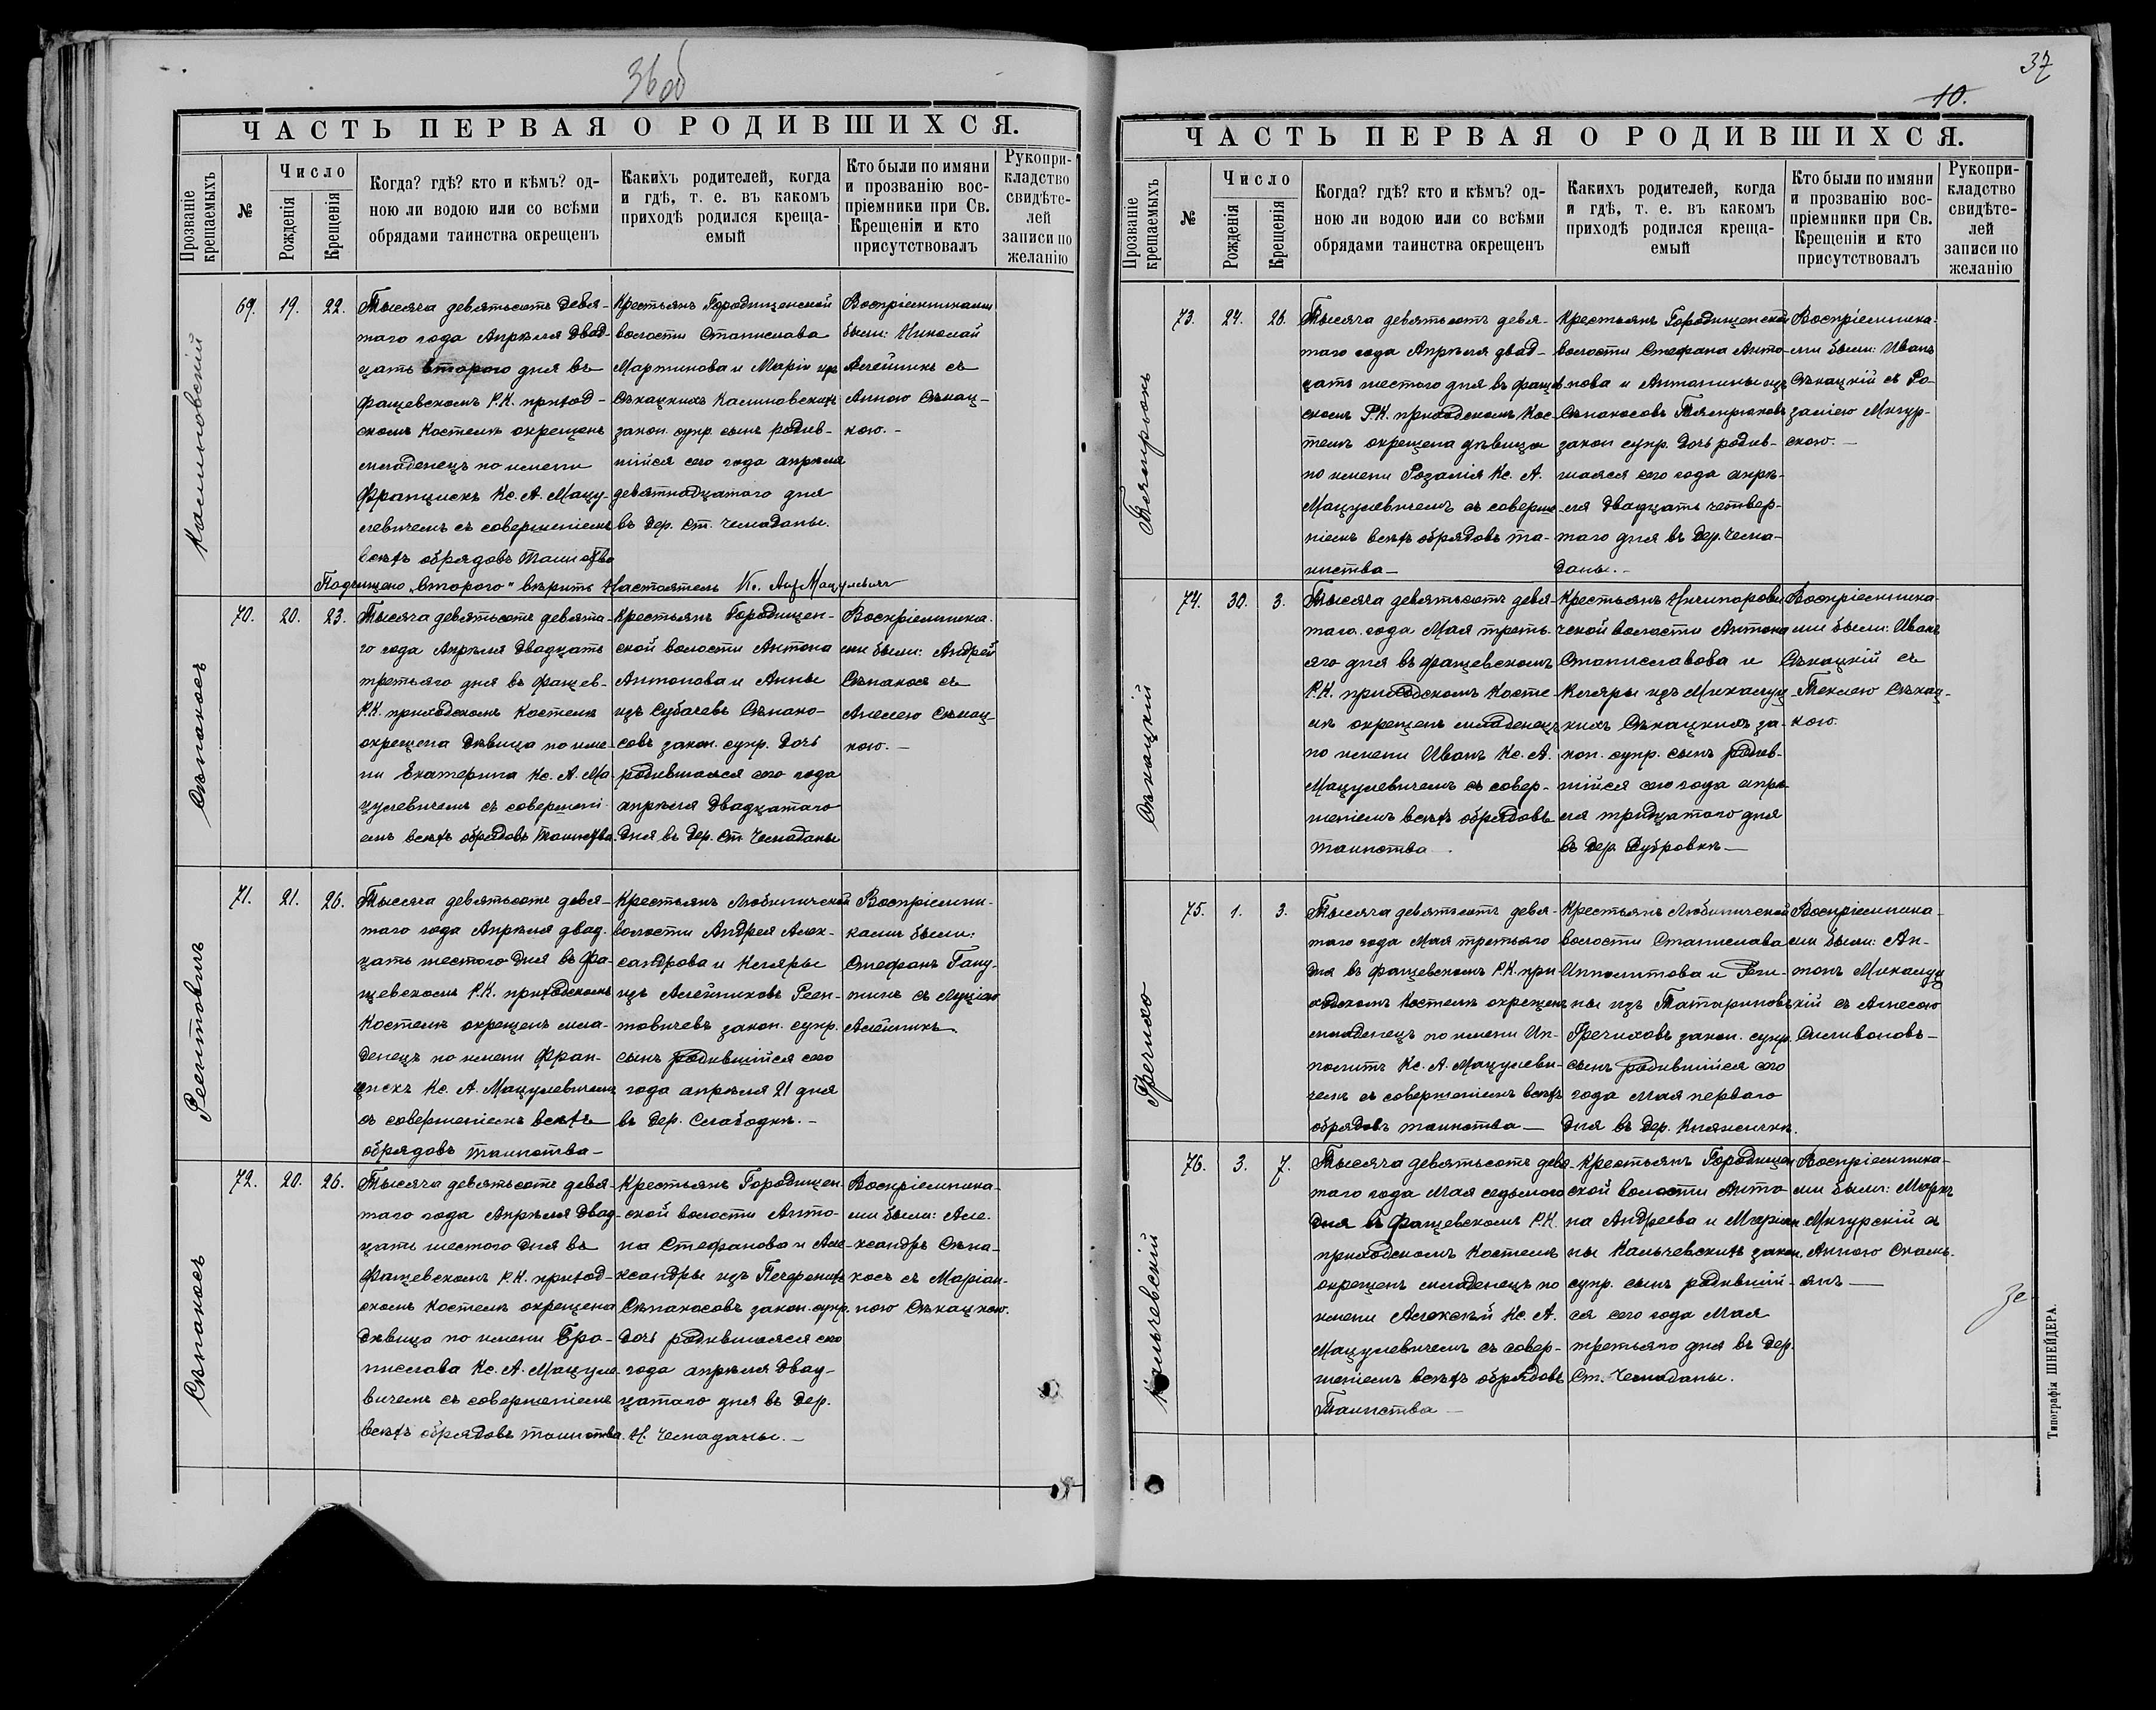 36 об
ЧАСТЬ ПЕРВАЯ О РОДИВШИХСЯ.
Прозваніе крещаемыхъ
№
Число
Рожденія
Крещенія
Когда? гдѣ? кто и кѣмъ? од-
ною ли водою или со всѣми
обрядами таинства окрещенъ
Какихъ родителей, когда
и гдѣ, т. е. въ какомъ
приходѣ родился креща-
емый
Кто были по имяни
и прозванію вос-
пріемники при Св.
Крещеніи и кто
присутствовалъ
Рукопри-
кладство
свидѣте-
лей
записи по
желанію
Калиновскій
69. 19. 22.
Тысяча девятьсотъ девя-
таго года Апрѣля двад-
цать второго дня въ
Фащевскомъ Р.К. приход-
скомъ Костелѣ окрещенъ
младенецъ по имени
Францискъ Кс. А. Мацу-
левичемъ съ совершеніемъ
всѣхъ обрядовъ Таинства
Крестьянъ Городищенской
волости Станислава
Мартинова и Маріи изъ
Сѣкацкихъ Калиновскихъ
закон. супр. сынъ родив-
шійся сего года апрѣля
девятнадцатаго дня
въ дер. Ст. Чемоданы.
Воспріемниками
были: Николай
Алейникъ съ
Анною Сѣкац-
кою.-
Подчищено „второго“ вѣрить Настоятель Кс. Ант Мацулевичъ
Сѣнакосъ
70. 20. 23.
Тысяча девятьсотъ девята-
го года Апрѣля двадцать
третьяго дня въ Фащев-
Р.К. приходскомъ Костелѣ
окрещена дѣвица по име-
ни Екатерина Кс. А. Ма-
цулевичемъ съ совершені-
емъ всѣхъ обрядовъ Таинства
Крестьянъ Городищен-
ской волости Антона
Антонова и Анны
изъ Субачевъ Сѣнако-
совъ закон. супр. дочь
родившаяся сего года
апрѣля двадцатаго
дня въ дер. Ст. Чемоданы
Воспріемника-
ми были: Андрей
Сѣнакосъ съ
Анелею Сѣкац-
кою.-
Реентовичъ
71. 21. 26.
Тысяча девятьсотъ девя-
таго года Апрѣля двад-
цать шестого дня въ Фа-
щевскомъ Р.К. приходскомъ
Костелѣ окрещенъ мла-
денецъ по имени Фран-
цискъ Кс. А. Мацулевичемъ
съ совершеніемъ всѣхъ
обрядовъ таинства-
Крестьянъ Любиничской
волости Андрея Алек-
сандрова и Кляры
изъ Алейниковъ Реен-
товичевъ закон. супр.
сынъ родившійся сего
года апрѣля 21 дня
въ дер. Слабодкѣ.-
Воспріемни-
ками были:
Стефанъ Гану-
тинъ съ Луціею
Алейникъ
Сѣнакосъ
72. 20. 26.
Тысяча девятьсотъ девя-
таго года Апрѣля двад-
цать шестого дня въ
Фащевскомъ Р.К. приход-
скомъ Костелѣ окрещена
дѣвица по имени Бро-
нислава Кс. А. Мацуле-
вичемъ съ совершеніемъ
всѣхъ обрядовъ таинства.
Крестьянъ Городищен-
ской волости Анто-
на Стефанова и Але-
ксандры изъ
Сѣнакосовъ закон. супр.
дочь родившаяся сего
года апрѣля двад-
цатаго дня въ дер.
Н. Чемоданы.-
Воспріемника-
ми были: Але-
ксандръ Сѣна-
косъ съ Маріан-
ною Сѣкацкою.
37
10.
ЧАСТЬ ПЕРВАЯ О РОДИВШИХСЯ.
Прозваніе крещаемыхъ
№
Число
Рожденія
Крещенія
Когда? гдѣ? кто и кѣмъ? од-
ною ли водою или со всѣми
обрядами таинства окрещенъ
Какихъ родителей, когда
и гдѣ, т. е. въ какомъ
приходѣ родился креща-
емый
Кто были по имяни
и прозванію вос-
пріемники при Св.
Крещеніи и кто
присутствовалъ
Рукопри-
кладство
свидѣте-
лей
записи по
желанію
73. 24. 26.
Тысяча девятьсотъ девя-
таго года Апрѣля двад-
цать шестого дня въ Фаще-
скомъ Р.К. приходскомъ Кос-
телѣ окрещена дѣвица
по имени Розалія Кс. А.
Мацулевичемъ съ соверше-
ніемъ всѣхъ обрядовъ та-
инства-
Крестьянъ Городищенской
волости Стефана Анто-
нова и Антонины изъ
Сѣнакосовъ
закон супр. дочь родив-
шаяся сего года апрѣ-
ля двадцать четвер-
таго дня въ дер. Чема-
даны.-
Воспріемника-
ми были: Иванъ
Сѣкацкій съ Ро-
заліею Мигур-
скою.-
Сѣкацкій
74. 30. 3.
Тысяча девятьсотъ девя-
таго года Мая треть-
яго дня въ Фащевскомъ
Р.К. приходскомъ Косте-
лѣ окрещенъ младенецъ
по имени Иванъ Кс. А.
Мацулевичемъ съ совер-
шеніемъ всѣхъ обрядовъ
таинства.
Крестьянъ Ничипорови
чской волости Антона
Станиславова и
Кляры изъ Микалуц-
кихъ Сѣкацкихъ за-
кон. супр. сынъ родив-
шійся сего года апрѣ-
ля тридцатаго дня
въ дер. Дубровкѣ-
Воспріемника-
ми были: Иванъ
Сѣкацкій съ
Теклею Сѣкац-
кою.
Гречихо
75. 1. 3.
Тысяча девятьсотъ девя-
таго года Мая третьяго
дня въ Фащевскомъ Р.К. при-
ходскомъ Костелѣ окрещенъ
младенецъ по имени Ип-
политъ Кс. А. Мацулеви-
чемъ съ совершеніемъ всѣхъ
обрядовъ таинства-
Крестьянъ Любиничской
волости Станислава
Ипполитова и Реги-
ны изъ Татариновъ
Гречиховъ закон. супр.
сынъ родившійся сего
года Мая перваго
дня въ дер. Княжичкѣ.
Воспріемника-
ми были: Ан-
тонъ Микалуц
кій съ Агнесою
Силивоновъ-
Кальчевскій
76. 3. 7.
Тысяча девятьсотъ девя-
таго года Мая седьмого
дня въ Фащевскомъ Р.К.
приходскомъ Костелѣ
окрещенъ младенецъ по
имени Алексѣй Кс. А.
Мацулевичемъ съ совер-
шеніемъ всѣхъ обрядовъ
Таинства-
Крестьянъ Городищен
ской волости Анто-
на Андреева и Маріан-
ны Кальчевскихъ закон.
супр. сынъ родившій-
ся сего года Мая
третьяго дня въ дер.
Ст. Чемоданы.
Воспріемника-
ми были: Маркъ
Мигурскій съ
Анною Скаль-
анъ-
Типографія ШНЕЙДЕРА.